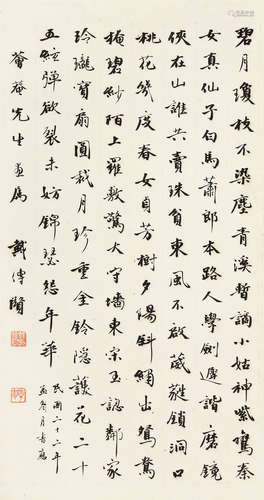 碧月瓊枝不染塵青溪暫謫小姑神紫鸞秦
女真仙子白馬蕭郎本路人學劍遲諧磨鏡
俠在山誰共賣珠貧東風不啟葳蕤鎖洞口
桃花幾度春女自芳樹夕陽斜綉出鴛鴦
掩碧紗陌上羅敷驚太守墻東宋玉認鄰家
玲瓏寶扇圓裁月珍重金鈴隱護花二十
五絃彈欲裂未妨錦瑟怨年華
民國二十二年
月書應
菴先生 為 戴傳賢